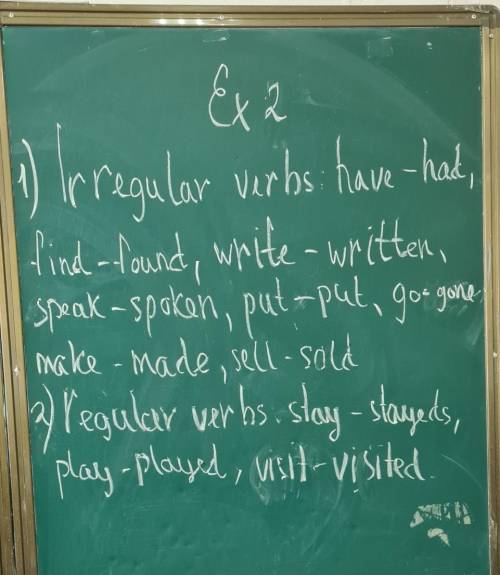 Ex 2
1) Irregular verbs: have - had,
find - found, write - written,
speak - spoken, put - put, go - gone
make - made, sell - sold
2) regular verbs: stay - stayeds,
play - played, visit - visited.